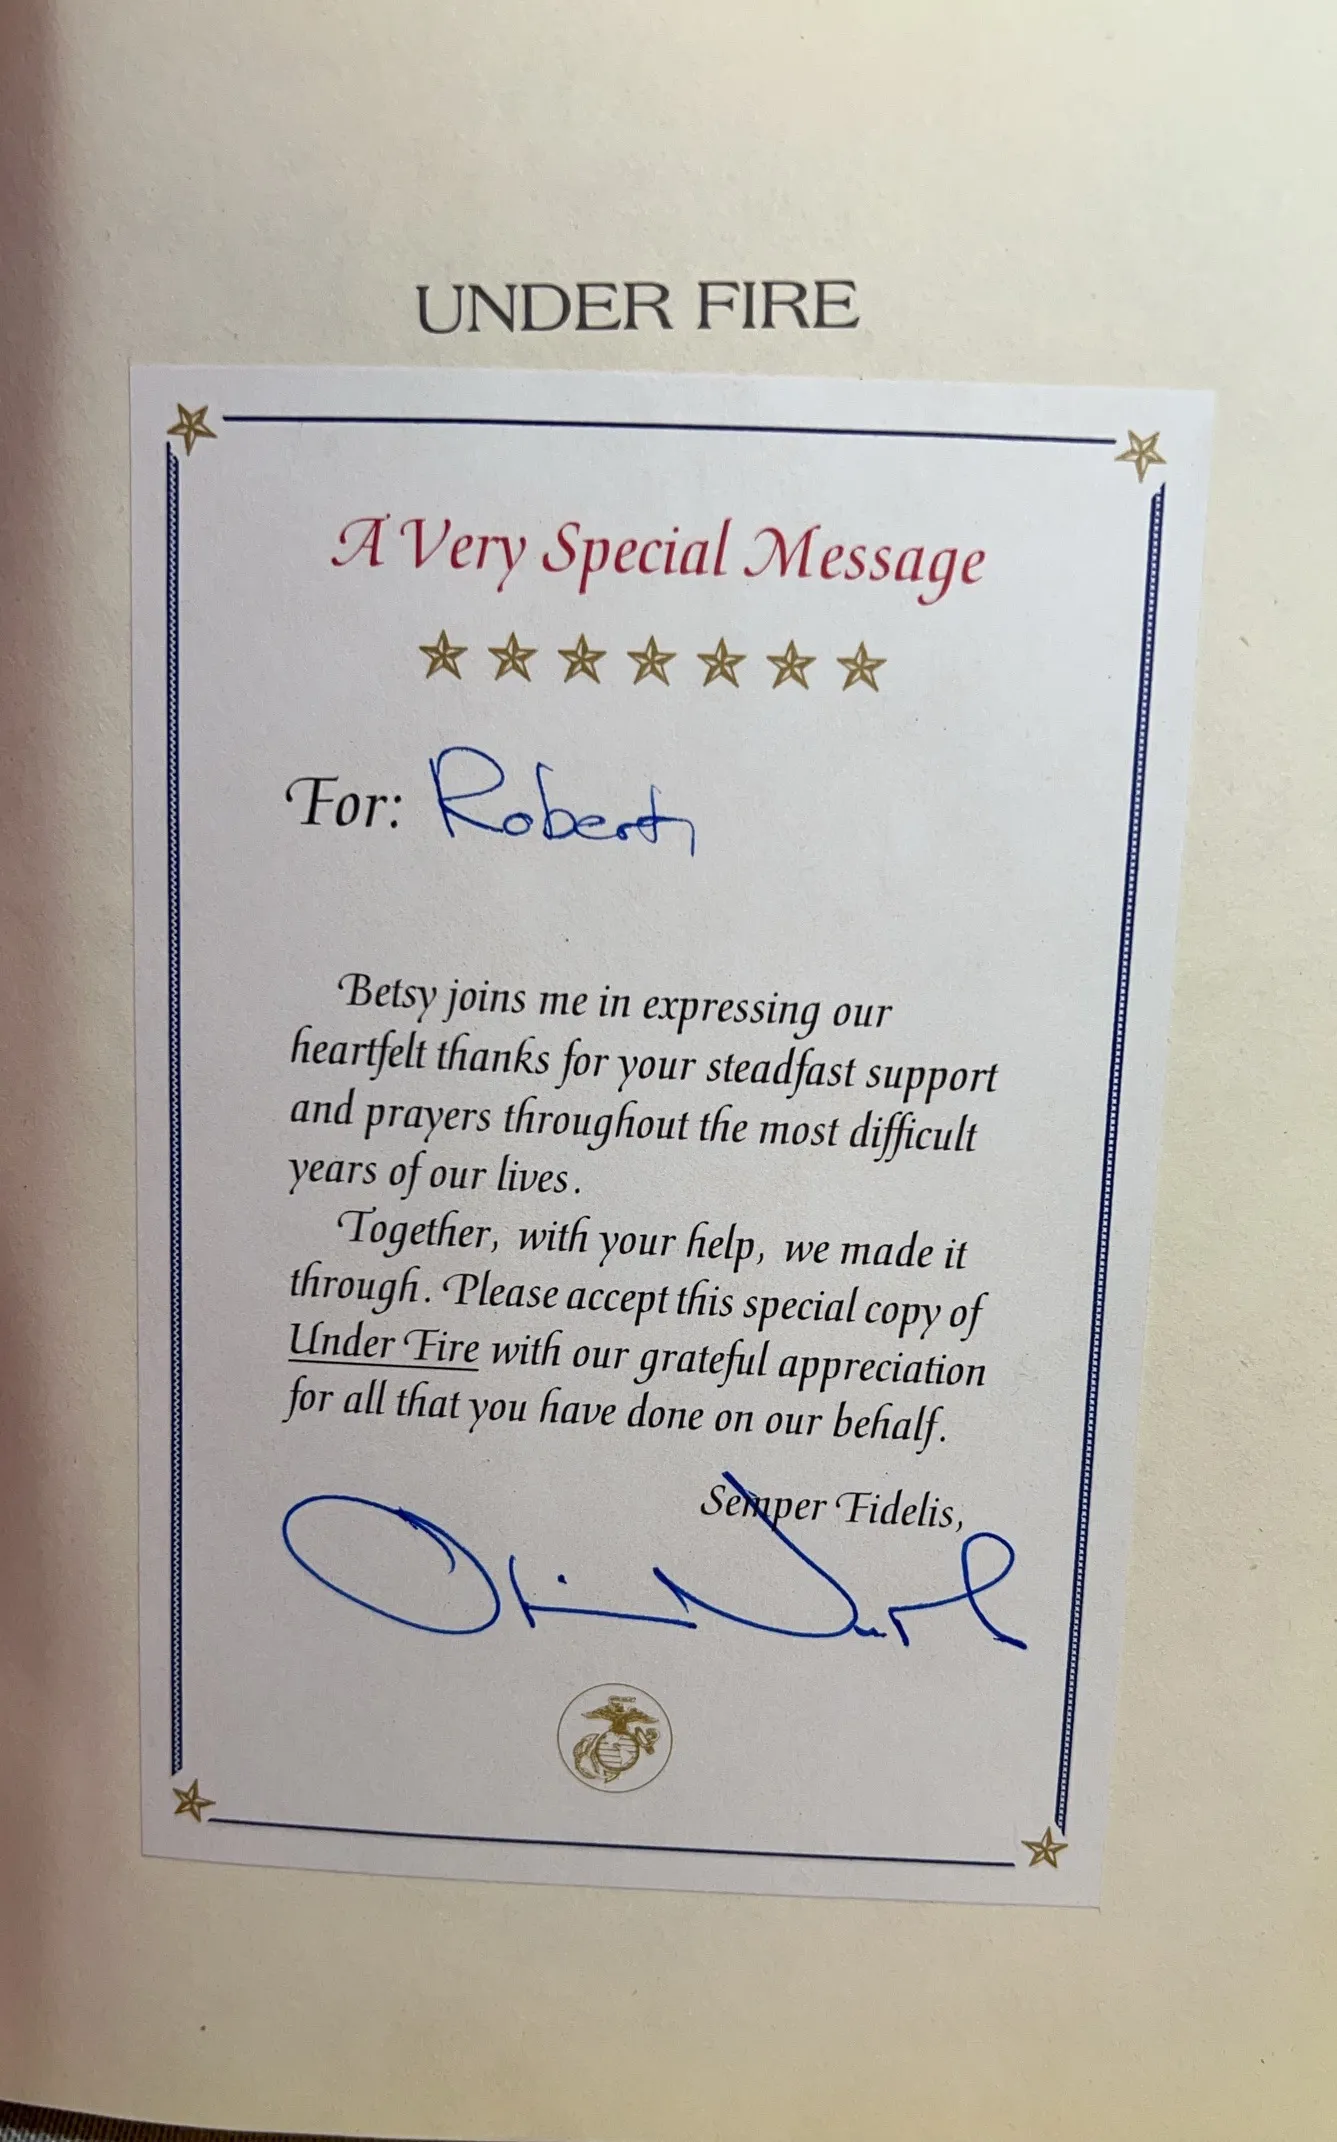 UNDER FIRE
A Very Special Message
For: Robert,
Betsy joins me in expressing our
heartfelt thanks for your steadfast support
and prayers throughout the most difficult
years of our lives.
Together, with your help, we made it
through. Please accept this special copy of
Under Fire with our grateful appreciation
for all that you have done on our behalf.
Semper Fidelis,
Oliver North